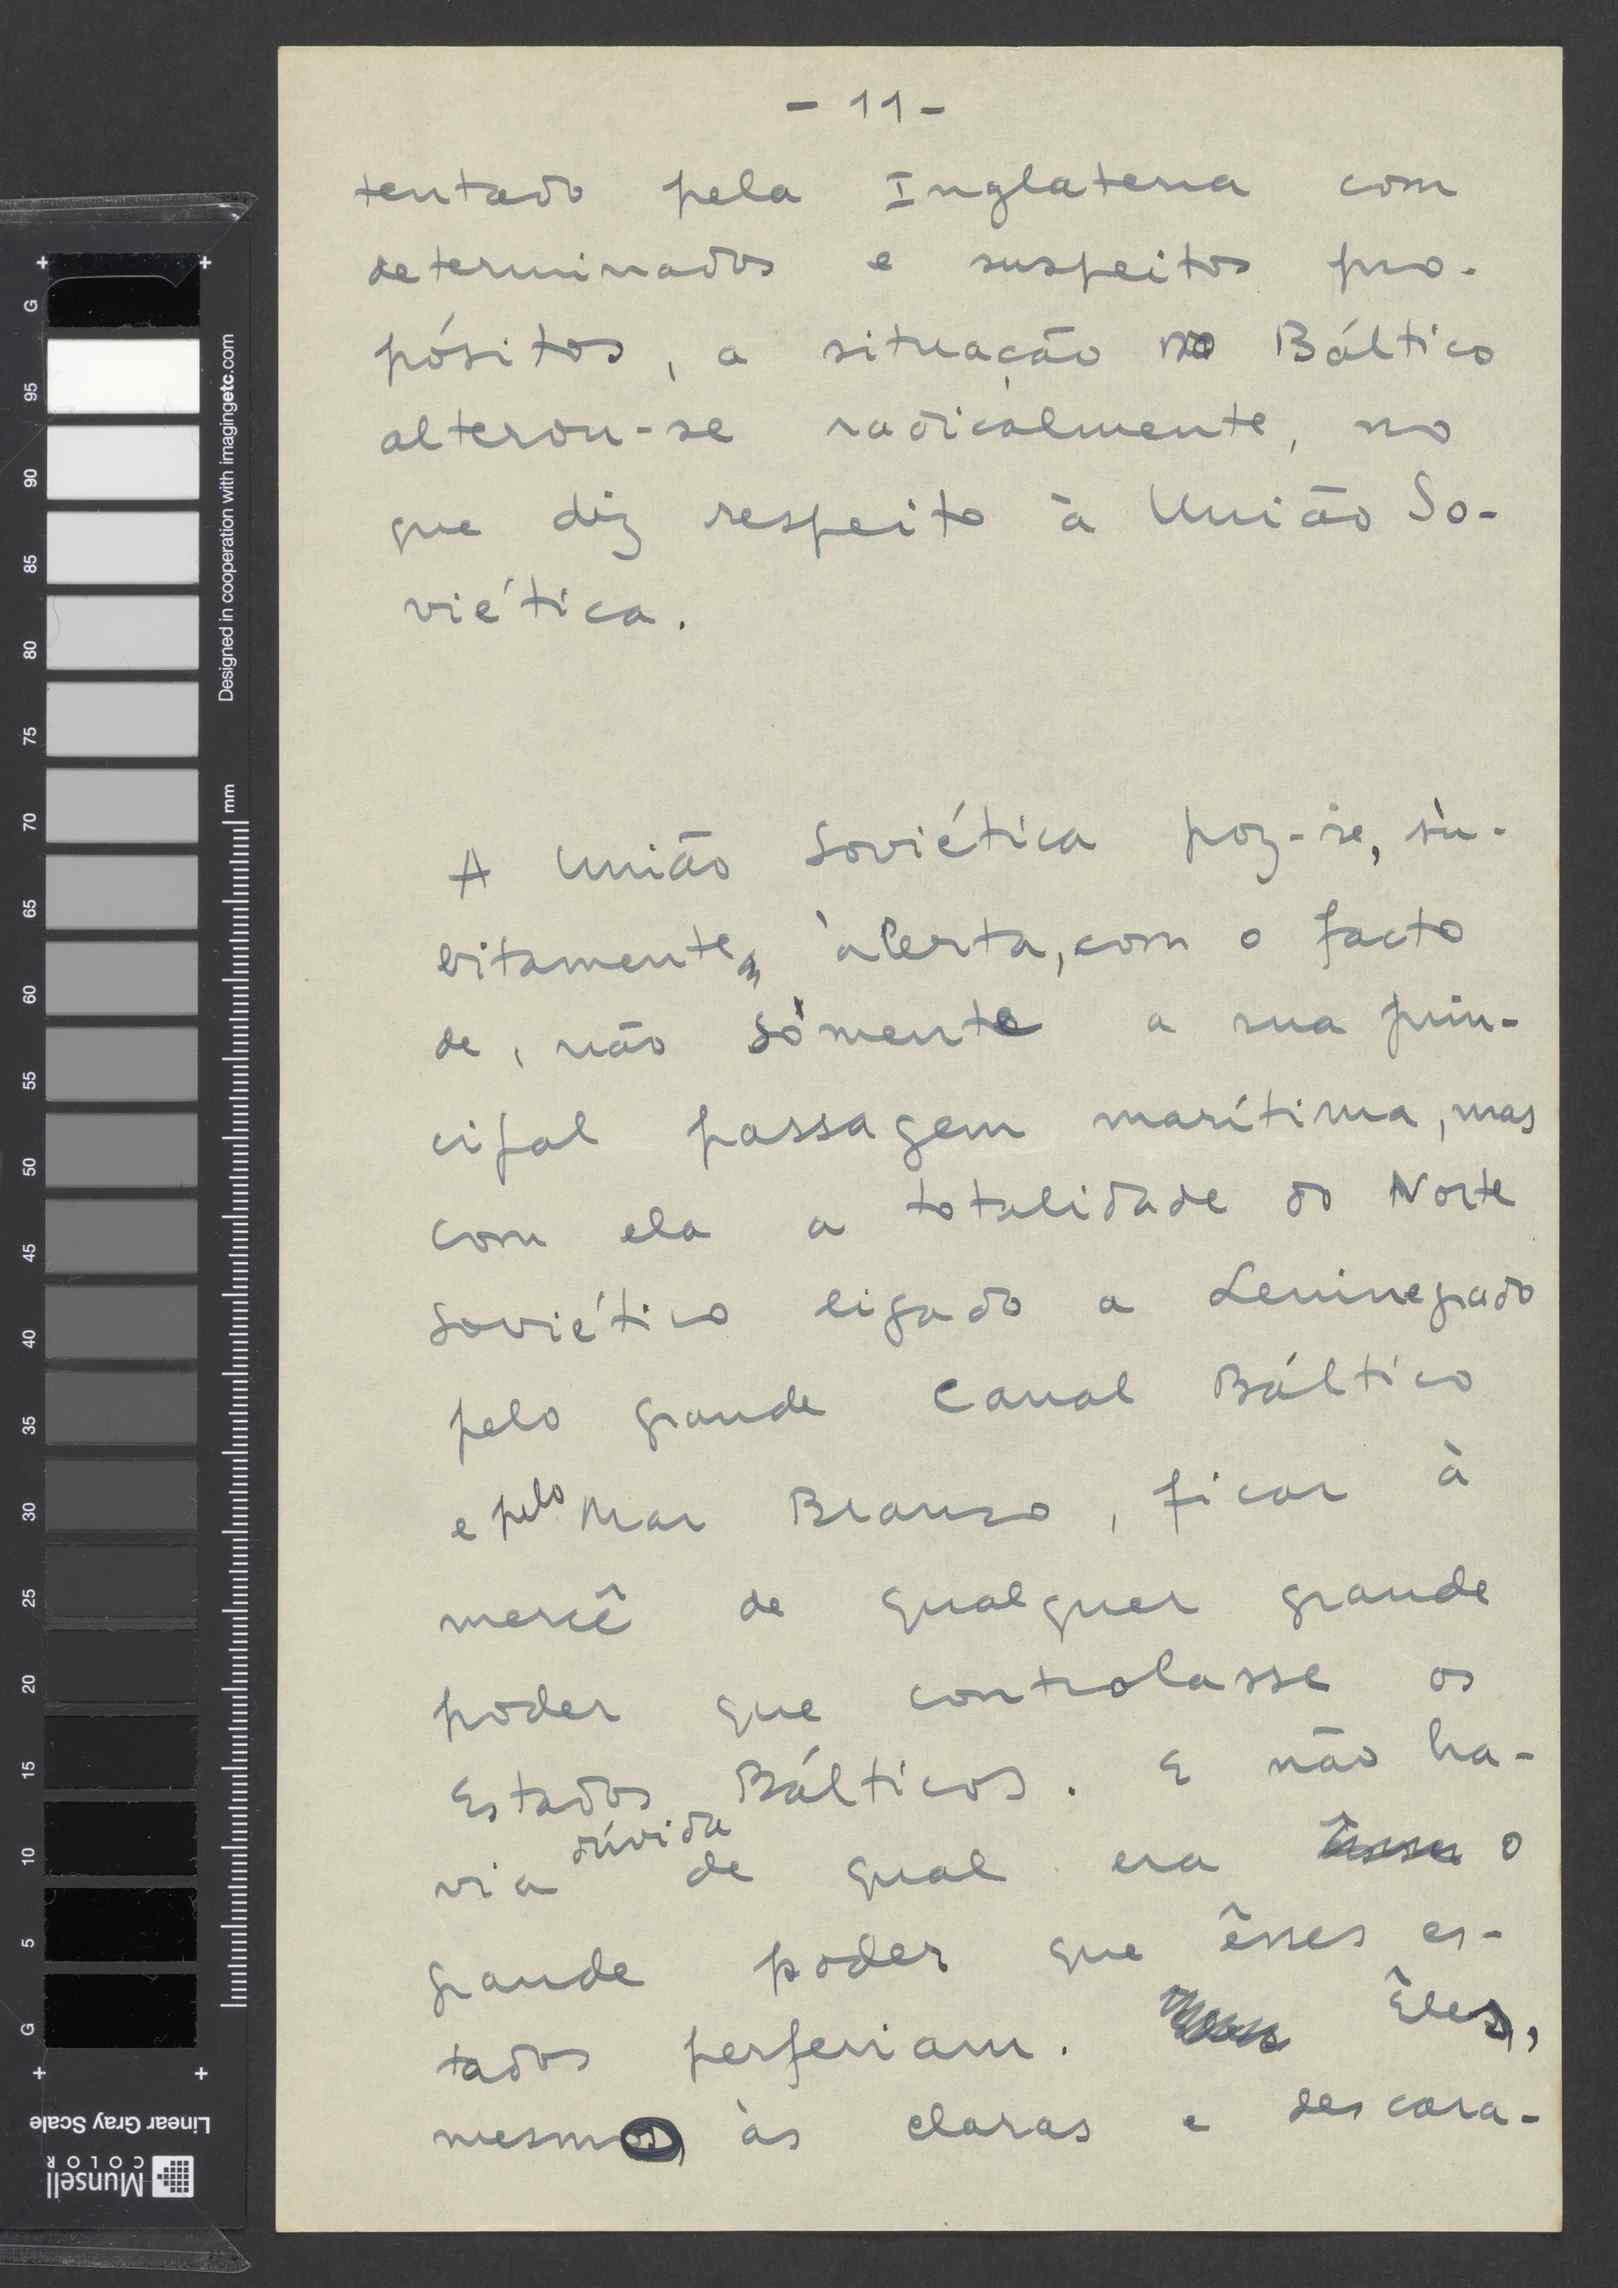 - 11 -
tentado pela Inglaterra com
determinados e suspeitos pro-
pósitos, a situação no Báltico
alterou-se radicalmente, no
que diz respeito à União So-
viética.
A União Soviética poz-se, sù-
bitamente, àlerta, com o facto
de, não sòmente a sua prin-
cipal passagem marítima, mas
com ela a totalidade do Norte
Soviético ligado a Leninegrado
pelo grande Canal Báltico
e pelo Mar Branco, ficar à
mercê de qualquer grande
poder que controlasse os
Estados Bálticos. E não ha-
via dúvida de qual era o
grande poder que êsses es-
tados perferiam. Êles,
mesmos, às claras e descara-
G 95 90 85 80 75 70 65 60 55 50 45 40 35 30 25 20 15 10 5 G
mm
Designed in cooperation with imagingetc.com
Linear Gray Scale
Munsell
COLOR